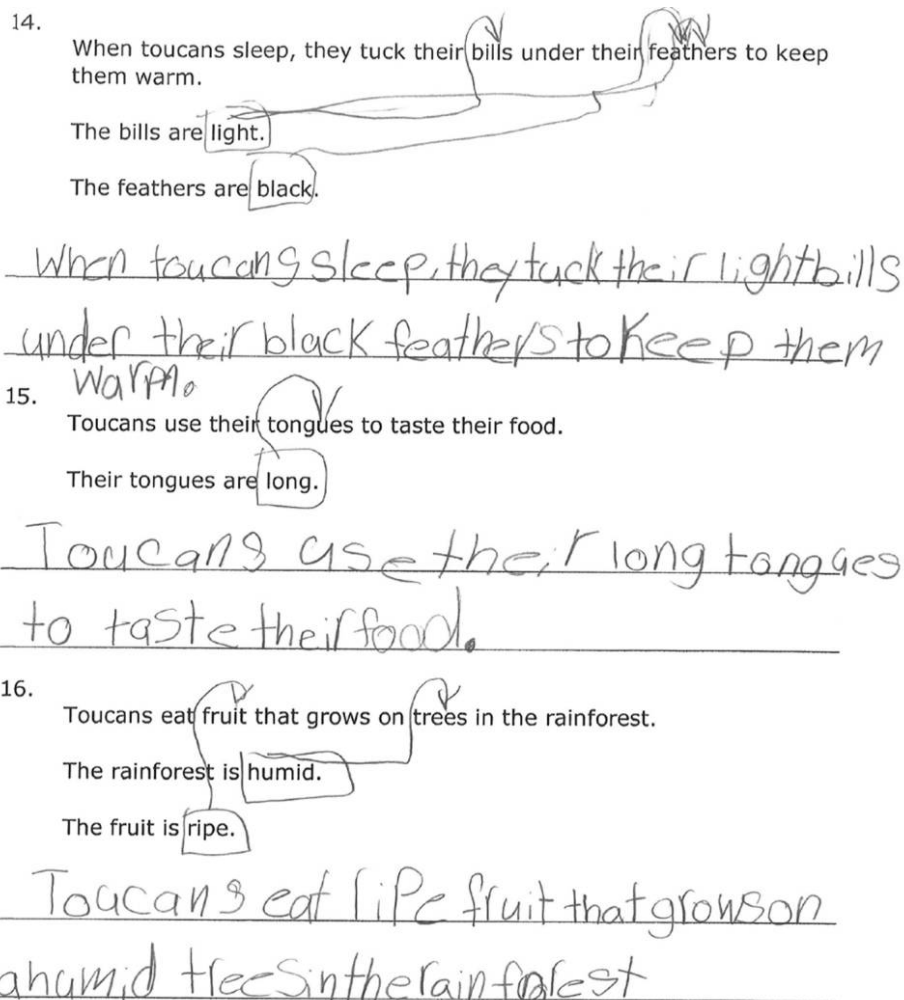 14.
When toucans sleep, they tuck their bills under their feathers to keep
them warm.
The bills are light.
The feathers are black.
When toucans sleep, they tuck their light bills
under their black feathers to keep them
warm.
15.
Toucans use their tongues to taste their food.
Their tongues are long.
Toucans use their long tongues
to taste their food.
16.
Toucans eat fruit that grows on trees in the rainforest.
The rainforest is humid.
The fruit is ripe.
Toucans eat ripe fruit that grows on
a humid trees in the rainforest